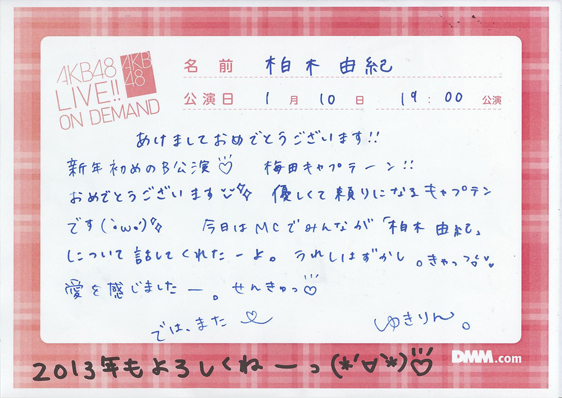 AKB48
LIVE!!
ON DEMAND
AKB
48
名前 柏木由紀
公演日 1月10日 19:00公演
あけましておめでとうございます!!
新年初めのB公演♡ 梅田キャプテーン!!
おめでとうございます 優しくて頼りになるキャプテン
です(´・ω・`)ﾉ 今日はMCでみんなが「柏木由紀」
について話してくれたーよ。うれしはずかし。きゃっ
愛を感じましたー。せんきゅっ♡
では、また♡ ゆきりん。
DMM.com
2013年もよろしくねーっ(*'∀'*)♡